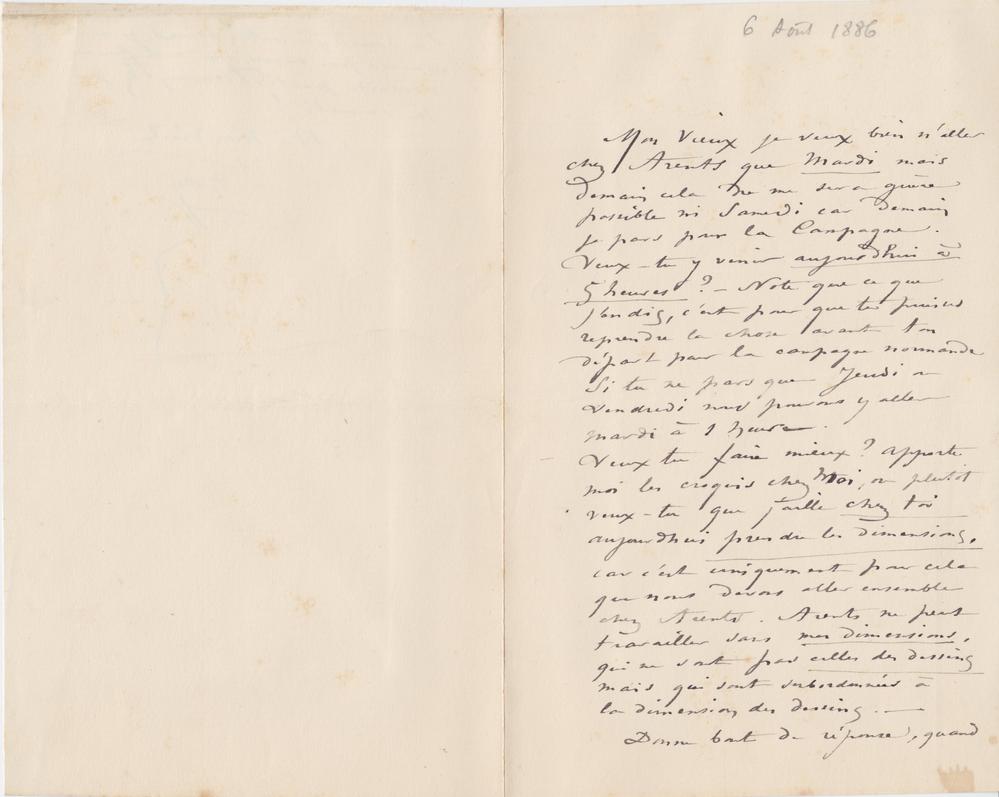 6 Août 1886
Mon Vieux je veux bien n'aller
chez Arents que Mardi mais
demain cela ne me sera guère
possible ni Samedi car demain
je pars pour la Campagne.
Veux-tu y venir aujourd'hui à
5 heures ? - Note que ce que
j'en dis, c'est pour que tu puisses
reprendre la chose avant ton
départ pour la campagne normande
Si tu ne pars que Jeudi ou
Vendredi nous pouvons y aller
mardi à 1 heure.
Veux tu faire mieux ? apporte
moi les croquis chez Moi, ou plutôt
veux-tu que j'aille chez toi
aujourdhui prendre les dimensions,
car c'est uniquement pour cela
que nous devons aller ensemble
chez Arents. Arents ne peut
travailler sans mes dimensions,
qui ne sont pas celles des dessins
mais qui sont subordonnées à
la dimension des dessins. —
Donne bout de réponse, quand